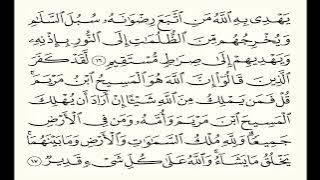 يَهْدِي بِهِ اللَّهُ مَنِ اتَّبَعَ رِضْوَانَهُ سُبُلَ السَّلَامِ
وَيُخْرِجُهُم مِّنَ الظُّلُمَاتِ إِلَى النُّورِ بِإِذْنِهِ
وَيَهْدِيهِمْ إِلَى صِرَاطٍ مُّسْتَقِيمٍ ١٦ لَّقَدْ كَفَرَ
الَّذِينَ قَالُوا إِنَّ اللَّهَ هُوَ الْمَسِيحُ ابْنُ مَرْيَمَ
قُلْ فَمَن يَمْلِكُ مِنَ اللَّهِ شَيْئًا إِنْ أَرَادَ أَن يُهْلِكَ
الْمَسِيحَ ابْنَ مَرْيَمَ وَأُمَّهُ وَمَن فِي الْأَرْضِ
جَمِيعًا وَلِلَّهِ مُلْكُ السَّمَاوَاتِ وَالْأَرْضِ وَمَا بَيْنَهُمَا
يَخْلُقُ مَا يَشَاءُ وَاللَّهُ عَلَى كُلِّ شَيْءٍ قَدِيرٌ ١٧